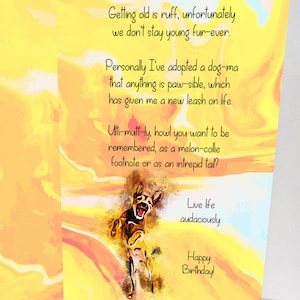 Getting old is ruff, unfortunately
we don't stay young fur-ever.
Personally I've adopted a dog-ma
that anything is paw-sible, which
has given me a new leash on life.
Ulti-mutt-ly, howl you want to be
remembered, as a melon-collie
footnote or as an intrepid tail?
Live life
audaciously
Happy
Birthday!